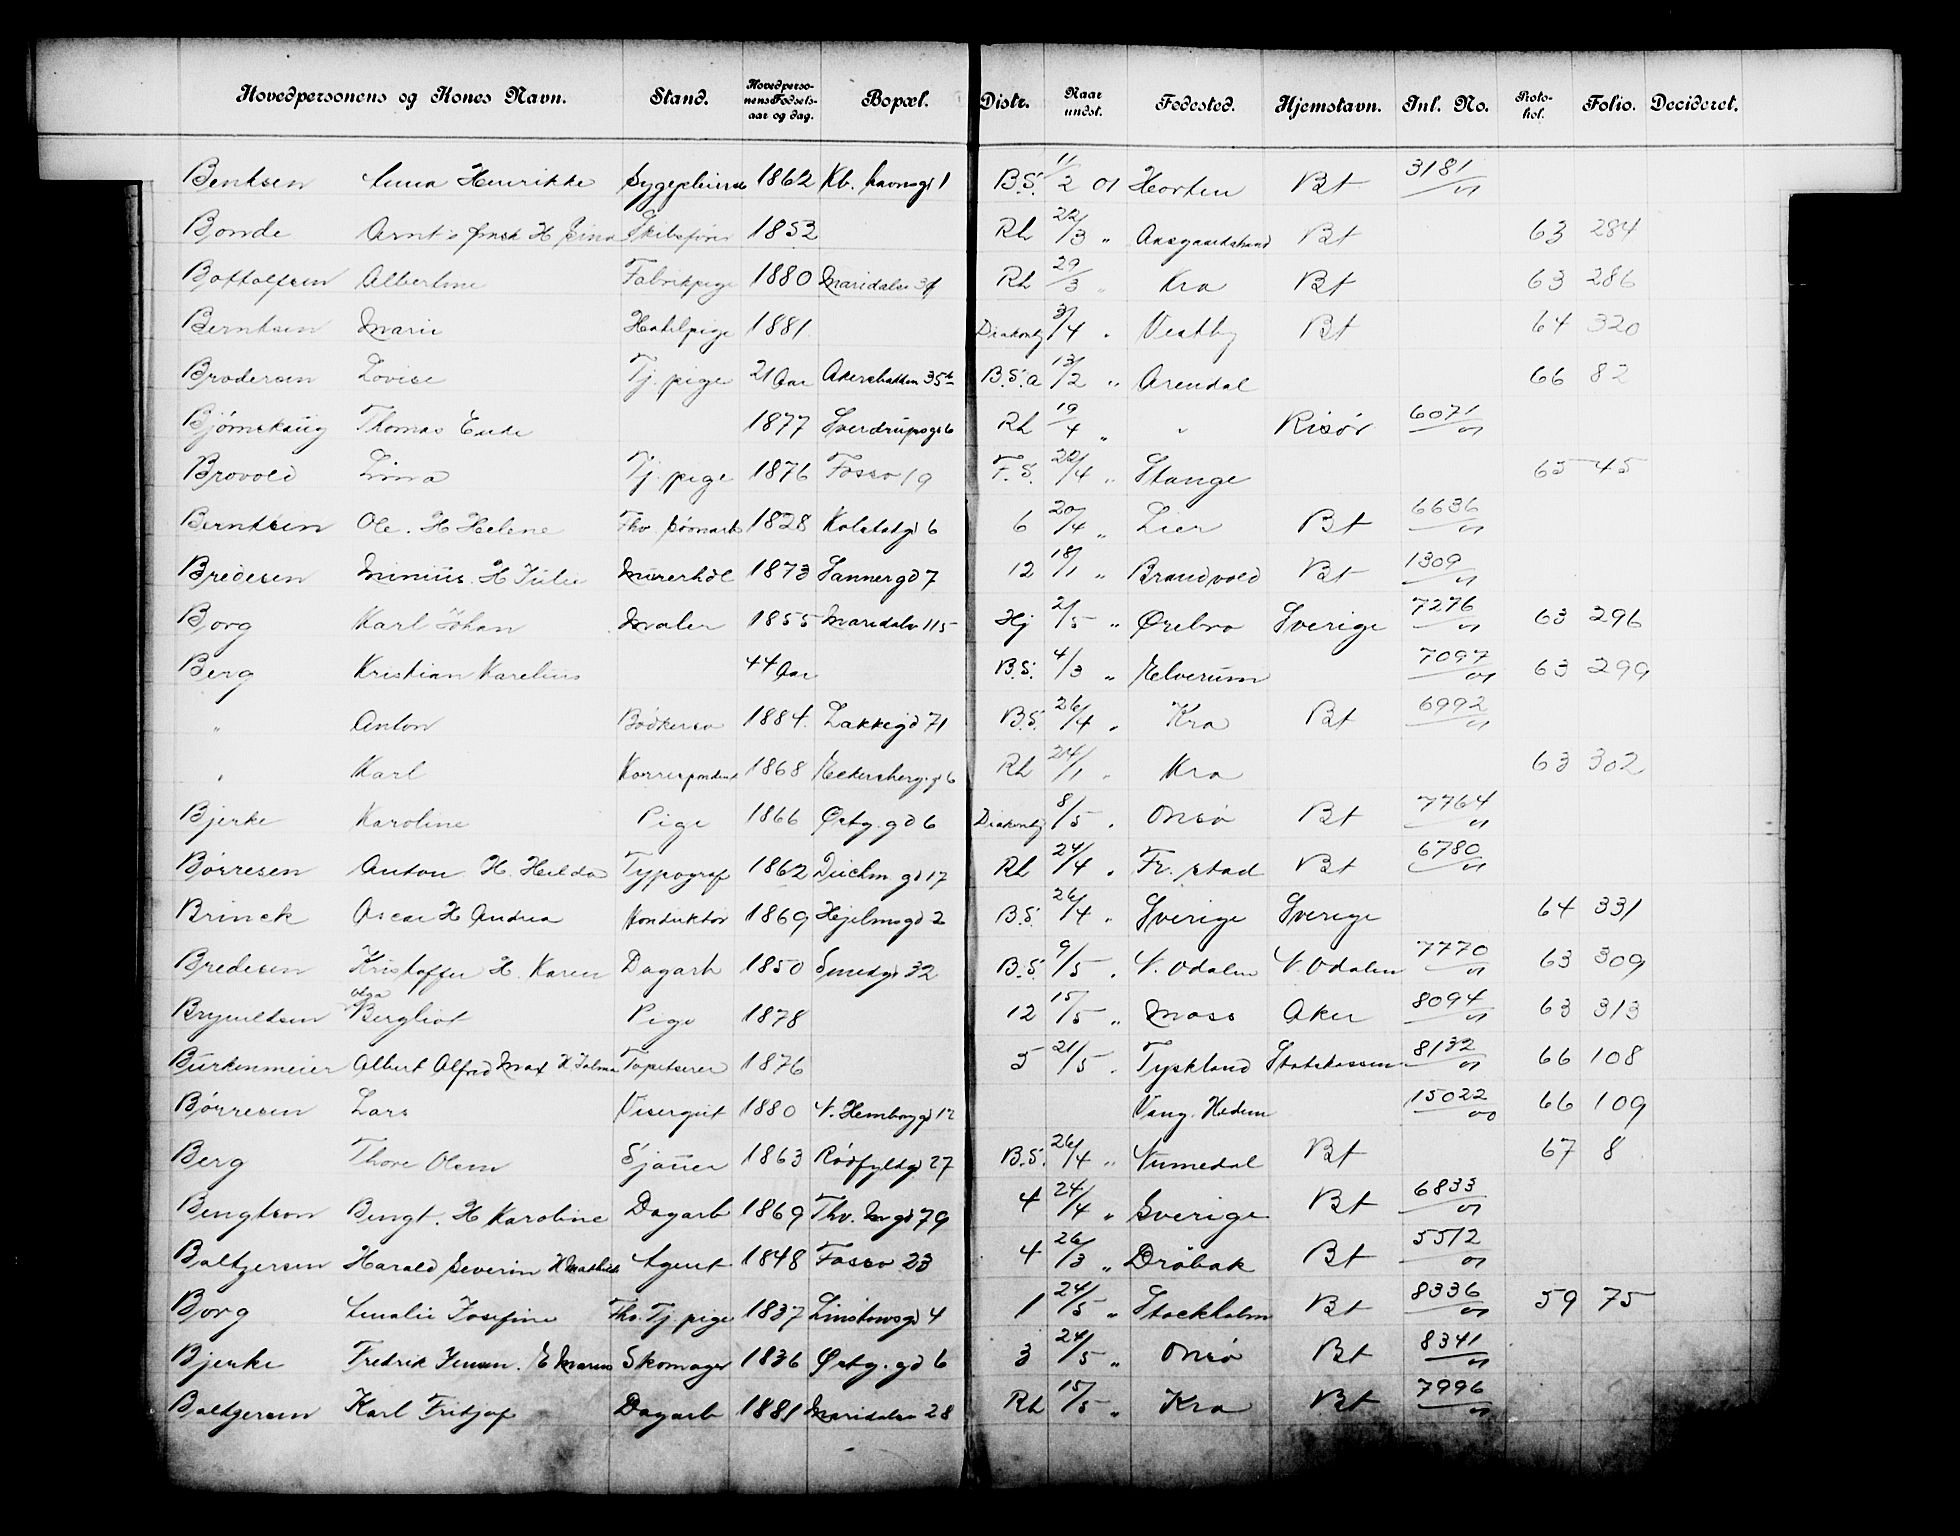 Hovedpersonens og Kones Navn. Stand. Hovedpersonens Fødselsaar og dag. Bopæl. Distr. Naar undst. Fødested. Hjemstavn. Jnl. No. Protokol. Folio. Decideret.
Bentsen Anna Henrikke 1862 Kb. havnsgd 1 B.S. 11/2 01 Horten Bt 3181/01
Bonde 1852 Rh 22/3 " Aasgaardstrand Bt 63 284
Albertine Fabrikpige 1880 Maridalsv Rh 29/3 " Kra Bt 63 286
Berntsen Marie Hotelpige 1881 Diakonhj /4 " Vestby Bt 64 320
Brodersen Lovise Tj. pige 21 Aar B.S.a 13/2 " Arendal 66 82
Bjørnskaug Thomas 1877 Sverdrupsgd 6 Rh 19/4 " " Risør 6071/01
Brovold Tj. pige 1876 Fossv 19 F.S. 22/4 " Stange 65 45
Berntsen Ole. H Helene 1828 6 20/4 " Lier Bt 6636/01
Bredesen H Julie Murerhdl 1873 Sannergd 7 12 18/1 " Brandvold Bt 1309/01
Borg Karl Johan Maler 1855 Maridalsv 115 Hj 2/5 " Ørebro Sverige 7276/01 63 296
Berg Kristian Karelius 44 Aar B.S. 4/3 " Elverum 7097/01 63 299
" Anton Bødkersv 1884. Lakkegd 71 B.S. 26/4 " Kra Bt 6992/01
" Karl Korrespondent 1868 Eckersberg. gd 6 Rh 24/1 " Kra 63 302
Bjerke Karoline Pige 1866 Østg. gd 6 Diakonhj 8/5 " Onsø Bt 7764/01
Børresen Anton H. Hilda Typograf 1862 Deichm. gd 17 Rh 24/4 " Fr. stad Bt 6780/01
Brinck Oscar H Andrea Konduktør 1869 Hjelmsgd 2 B.S. 26/4 " Sverige Sverige 64 331
Bredesen Kristoffer H. Karen Dagarb 1850 Smedgd 32 B.S. 9/5 " N. Odalen N. Odalen 7770/01 63 309
Olga
Brynildsen Bergliot Pige 1878 12 15/5 " Moss Aker 8094/01 63 313
Burkenmeier Albert Alfred Max H Tapetserer 1876 5 21/5 " Tyskland Statskassen 8132/01 66 108
Børresen Lars Visergut 1880 Vang. Hedem 15022/00 66 109
Berg Thore Olsen Sjauer 1863 Rødfyldgd 27 B.S. 26/4 " Numedal Bt 67 8
Bengtson Bengt. H Karoline Dagarb 1869 Thv. Mgd 79 4 24/4 " Sverige Bt 6833/01
Baltzersen Harald Severin H Mathilde Agent 1848 Fossv 23 4 26/3 " Drøbak Bt 5512/01
Borg Amalie Josefine Thv. Tj. pige 1837 Linstowsgd 4 1 24/5 " Stockholm Bt 8336/01 59 75
Bjerke Fredrik Jensen. E Maren Skomager 1836 Østg. gd 6 3 24/5 " Onsø Bt 8341/01
Baltzersen Karl Fritjof Dagarb 1881 Maridalsv 28 Rh 15/5 " Kra Bt 7996/01